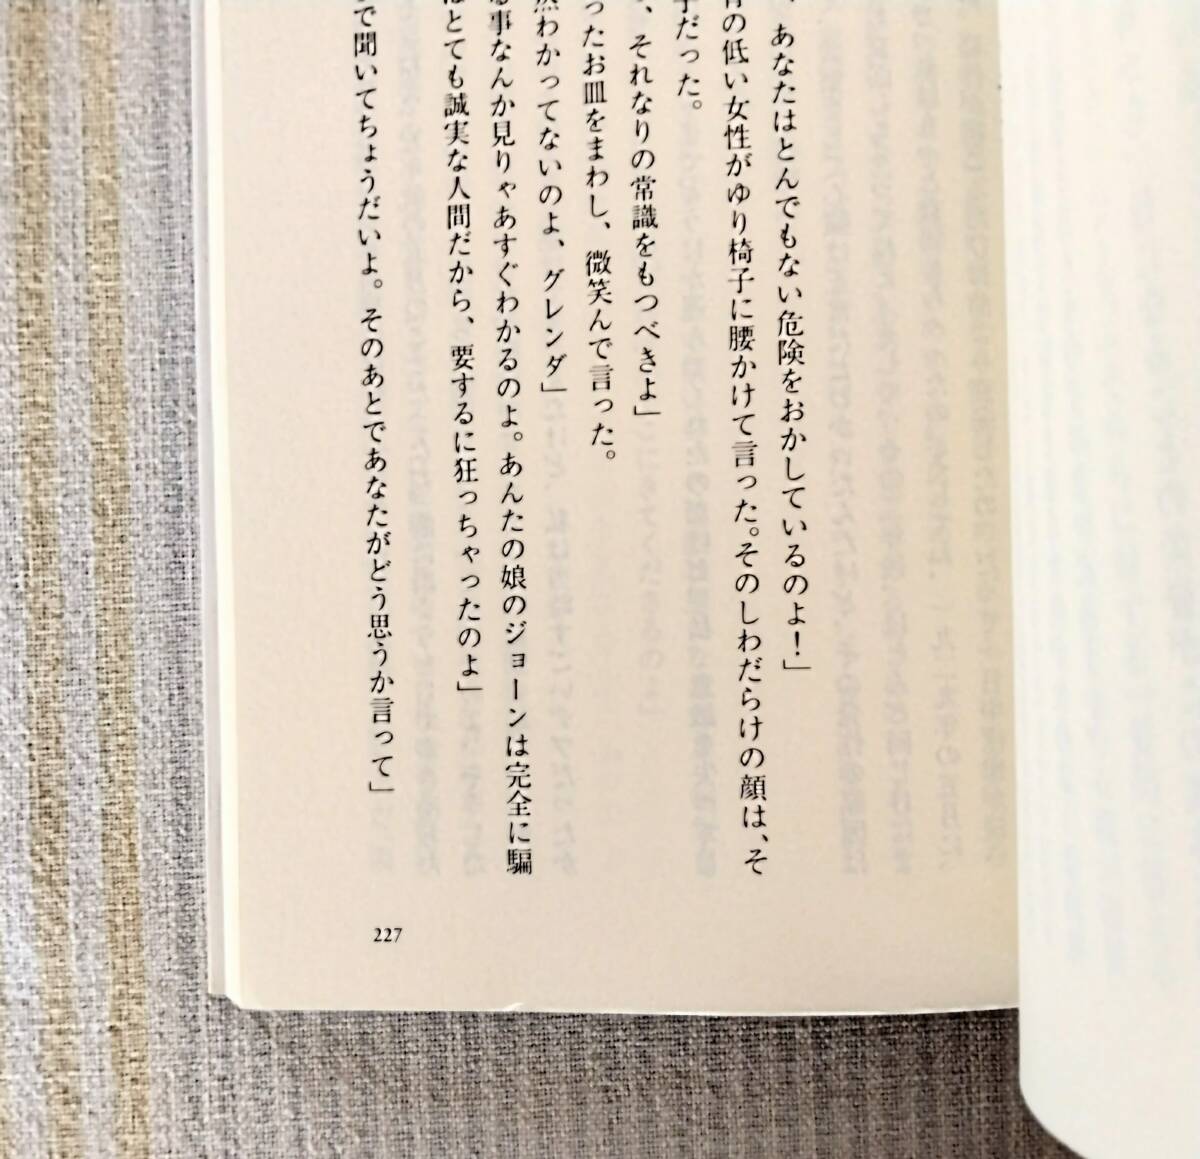 、あなたはとんでもない危険をおかしているのよ！」
の低い女性がゆり椅子に腰かけて言った。そのしわだらけの顔は、そ
子だった。
、それなりの常識をもつべきよ」
ったお皿をまわし、微笑んで言った。
然わかってないのよ、グレンダ」
る事なんか見りゃあすぐわかるのよ。あんたの娘のジョーンは完全に騙
はとても誠実な人間だから、要するに狂っちゃったのよ」
で聞いてちょうだいよ。そのあとであなたがどう思うか言って」
227